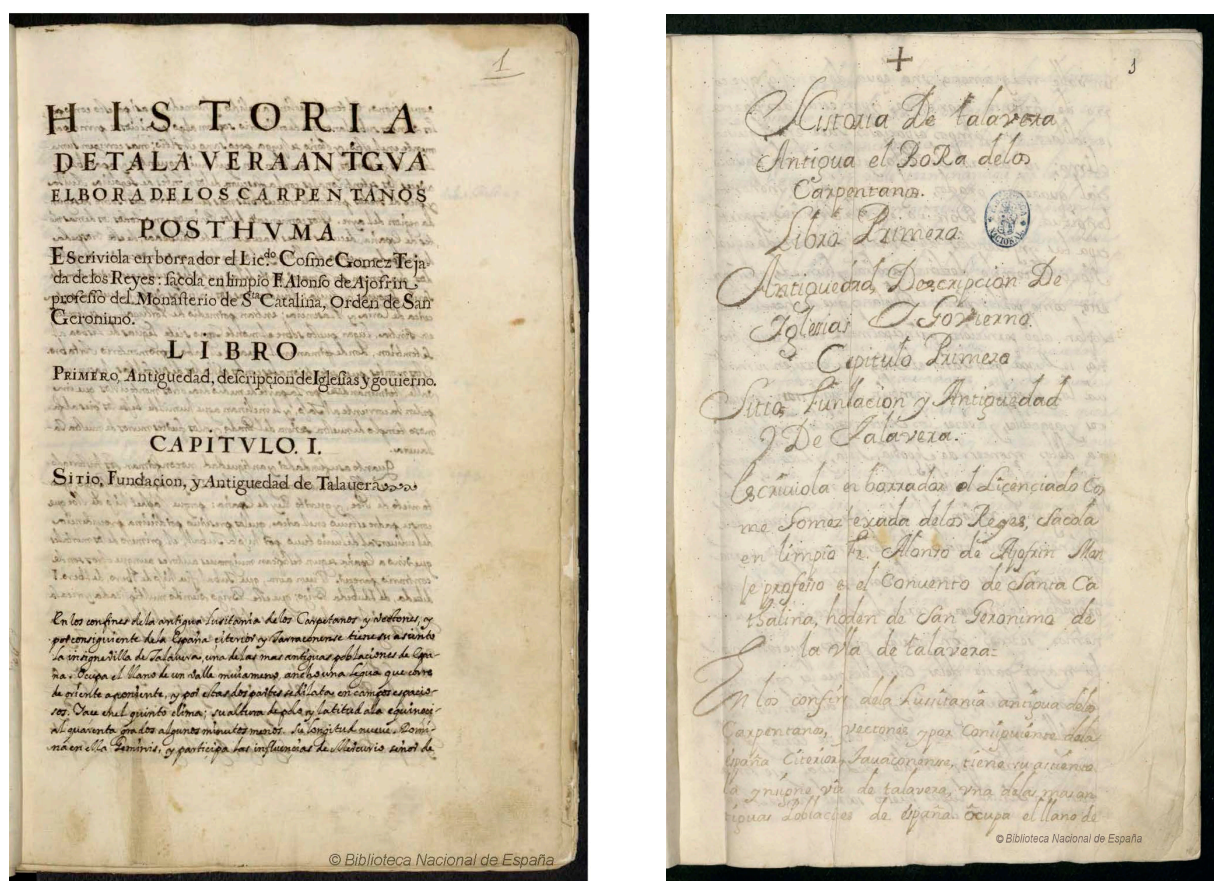 1
HISTORIA
DE TALAVERA ANTGVA
ELBORA DE LOS CARPENTANOS
POSTHVMA
Escriviola en borrador el Lic.do Cosme Gomez Teja-
da de los Reyes: sacola en limpio F. Alonso de Ajofrin
professo del Monasterio de Sta Catalina, Orden de San
Geronimo.
LIBRO
PRIMERO, Antiguedad, descripcion de Iglesias y govierno.
CAPITVLO. I.
Sitio, Fundacion, y Antiguedad de Talavera
En los confines de la antigua Lusitania de los Carpetanos y Vectones, y
por consiguiente de la España citerior y Tarraconense tiene su asiento
la insigne villa de Talavera, una de las mas antiguas poblaciones de Espa-
ña. Ocupa el llano de un valle muy ameno, ancho una legua que corre
de oriente a poniente, y por estas dos partes se dilata en campos espacio-
sos. Yace en el quinto clima; su altura de polo y latitud a la equinoci-
al quarenta grados algunos minutos menos. Su longitud nueve. Domi-
na en ella Geminis, y participa las influencias de Mercurio, señor de
© Biblioteca Nacional de España
1
Historia De talavera
Antigua el BoRa delos
Carpentanos.
Libro Primero
Antiguedad, Descripcion De
Iglesias Y Govierno.
Capitulo Primero
Sitio, Funlacion y Antiguedad
De Talavera.
Escriviola en borrador el Licenciado Co
me Gomez texada delos Reyes, sacola
en limpio Fr. Alonso de Ajofrin Mon
Je professo e el Convento de Santa Ca
thalina, horden de San Geronimo de
la Vᵃ de talavera=
En los confin dela Lusitania antigua delos
Carpentanos, Vectones y por Consiguiente dela
españa Citerior y Tarraconense, tiene su asiento
la ynsigne vᵃ de talavera, vna delas mas an
tiguas Poblacies de españa Ocupa el llano de
© Biblioteca Nacional de España